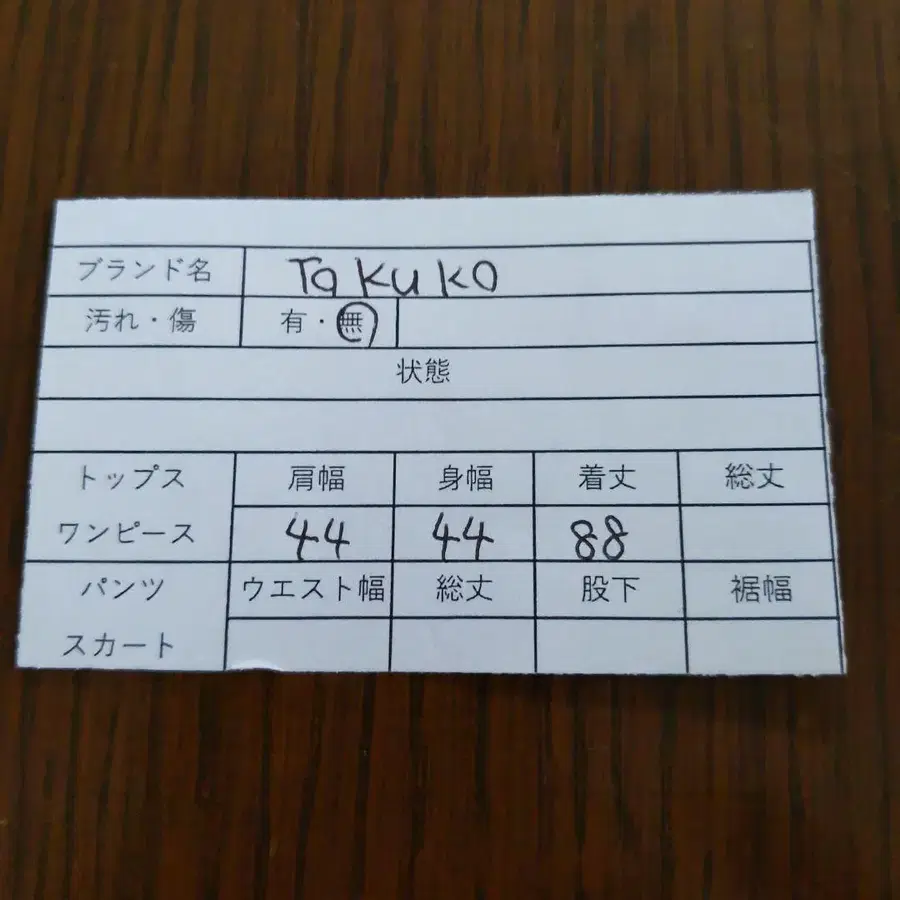 ブランド名 Takuko
汚れ・傷 有・無
状態
トップス 肩幅 身幅 着丈 総丈
ワンピース 44 44 88
パンツ ウエスト幅 総丈 股下 裾幅
スカート